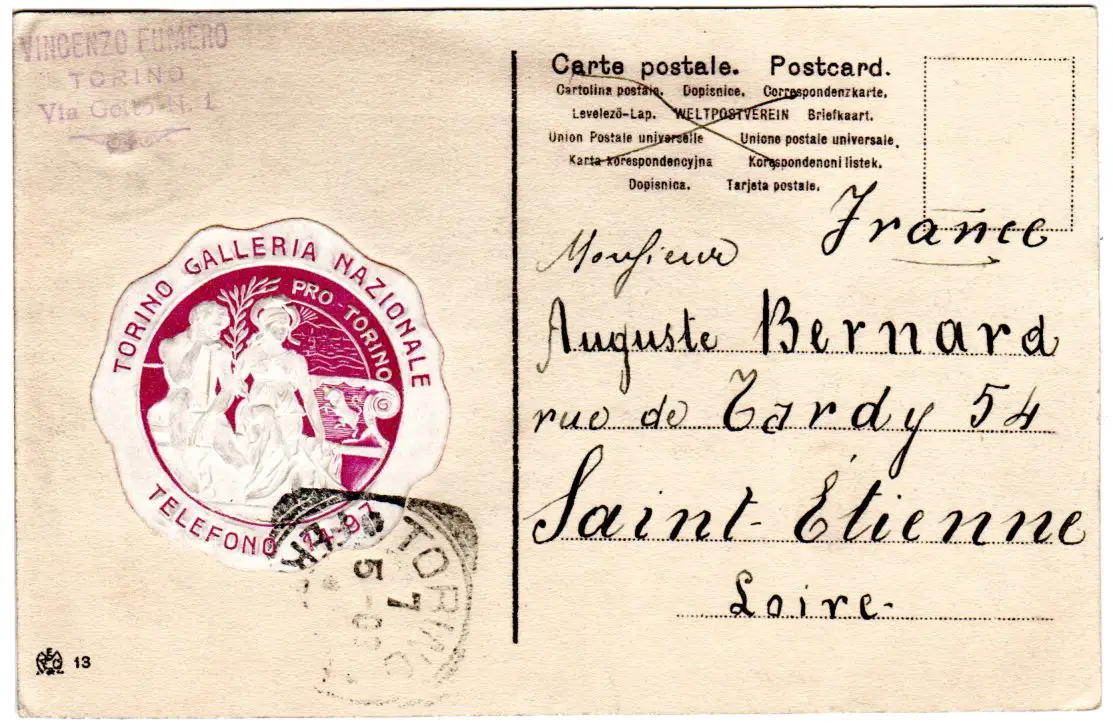 VINCENZO FUMERO
TORINO
TORINO GALLERIA NAZIONALE
PRO-TORINO
TELEFONO 14-97
TORINO
7
5
13
Carte postale. Postcard.
Cartolina postale. Dopisnice. Correspondenzkarte.
Levelező-Lap. WELTPOSTVEREIN Briefkaart.
Union Postale universelle Unione postale universale.
Karta korespondencyjna Korespondenční listek.
Dopisnica. Tarjeta postale.
France
Monsieur
Auguste Bernard
rue de Tardy 54
Saint-Étienne
Loire